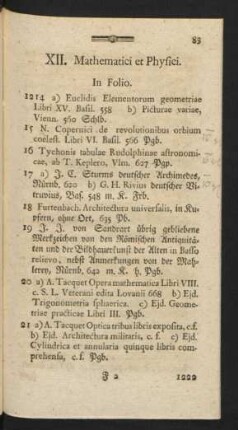 83
XII. Mathematici et Physici.
In Folio.
1214 a) Euclidis Elementorum geometriae
Libri XV. Basil. 558 b) Picturae variae,
Vienn. 560 Schlb.
15 N. Copernici de revolutionibus orbium
coelest. Libri VI. Basil. 566 Pgb.
16 Tychonis tabulae Rudolphinae astronomi-
cae, ab T. Keplero, Vlm. 627 Pgp.
17 a) J. C. Sturms deutscher Archimedes,
Nürnb. 620 b) G. H. Rivius deutscher Vi-
truvius, Bas. 548 m. K. Frb.
18 Furtenbach. Architectura universalis, in Ku-
pfern, ohne Ort, 635 Pb.
19 J. J. von Sandrart übrig gebliebene
Merkzeichen von den Römischen Antiquitä-
ten und der Bildhauerkunst der Alten in Basso
relievo, nebst Anmerkungen von der Mah-
lerey, Nürnb. 642 m. K. h. Pgb.
20 a) A. Tacquet Opera mathematica Libri VIII.
c. S. L. Veterani edita Lovanii 668 b) Ejd.
Trigonometria sphaerica. c) Ejd. Geome-
triae practicae Libri III. Pgb.
21 a) A. Tacquet Optica tribus libris exposita, c.f.
b) Ejd. Architectura militaris, c. f. c) Ejd.
Cylindrica et annularia quinque libris com-
prehensa, c. f. Pgb.
F 2
1222